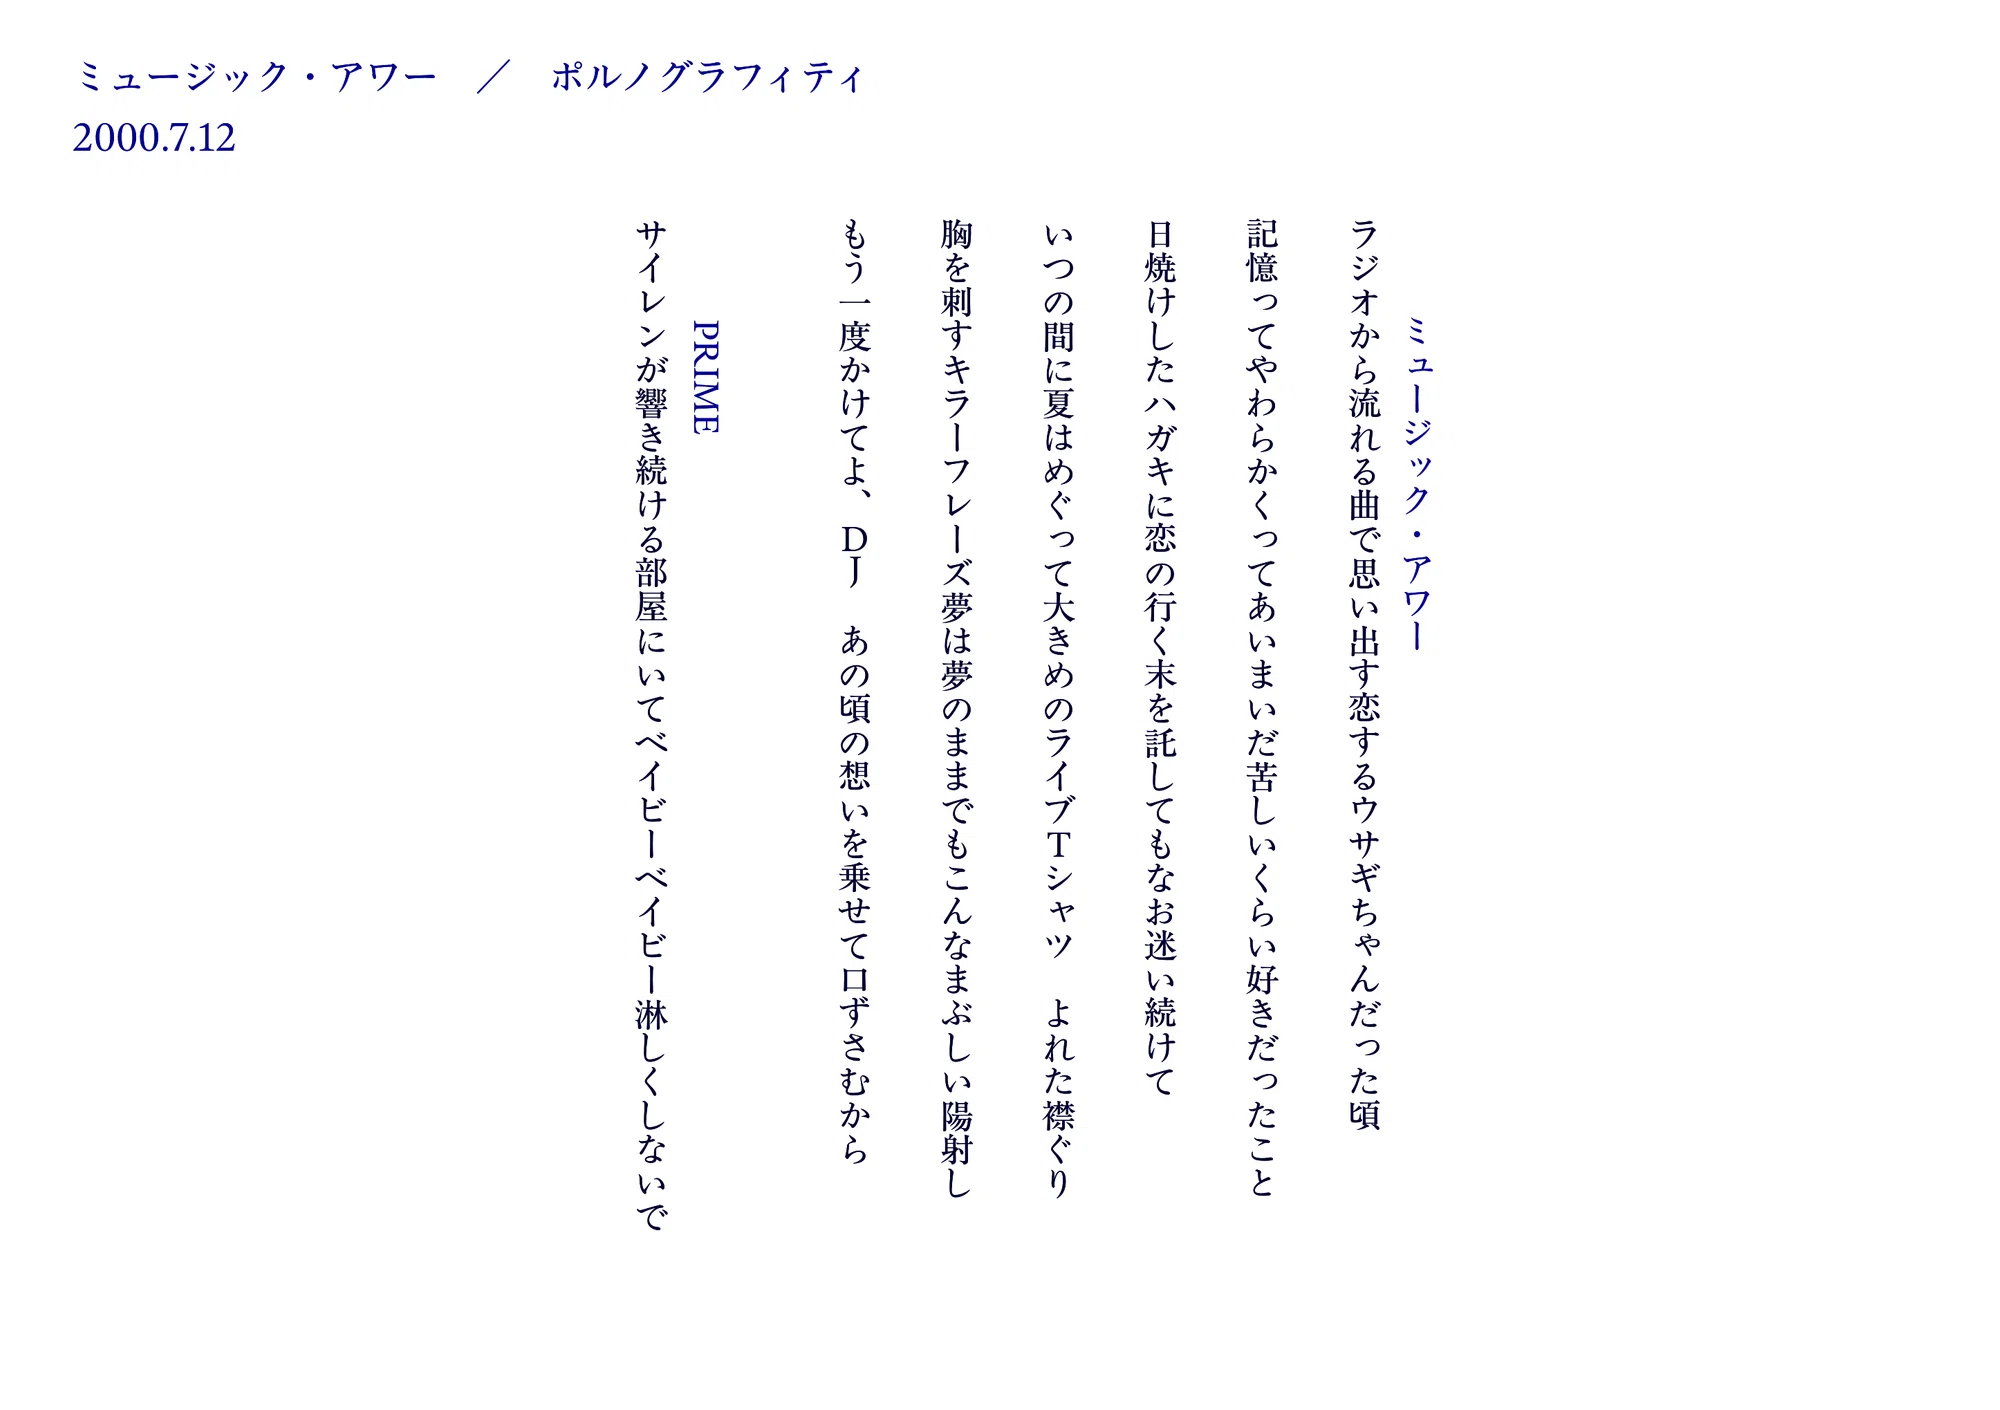 ミュージック・アワー　／　ポルノグラフィティ
2000.7.12
ミュージック・アワー
ラジオから流れる曲で思い出す恋するウサギちゃんだった頃
記憶ってやわらかくってあいまいだ苦しいくらい好きだったこと
日焼けしたハガキに恋の行く末を託してもなお迷い続けて
いつの間に夏はめぐって大きめのライブTシャツ　よれた襟ぐり
胸を刺すキラーフレーズ夢は夢のままでもこんなまぶしい陽射し
もう一度かけてよ、DJ　あの頃の想いを乗せて口ずさむから
PRIME
サイレンが響き続ける部屋にいてベイビーベイビー淋しくしないで